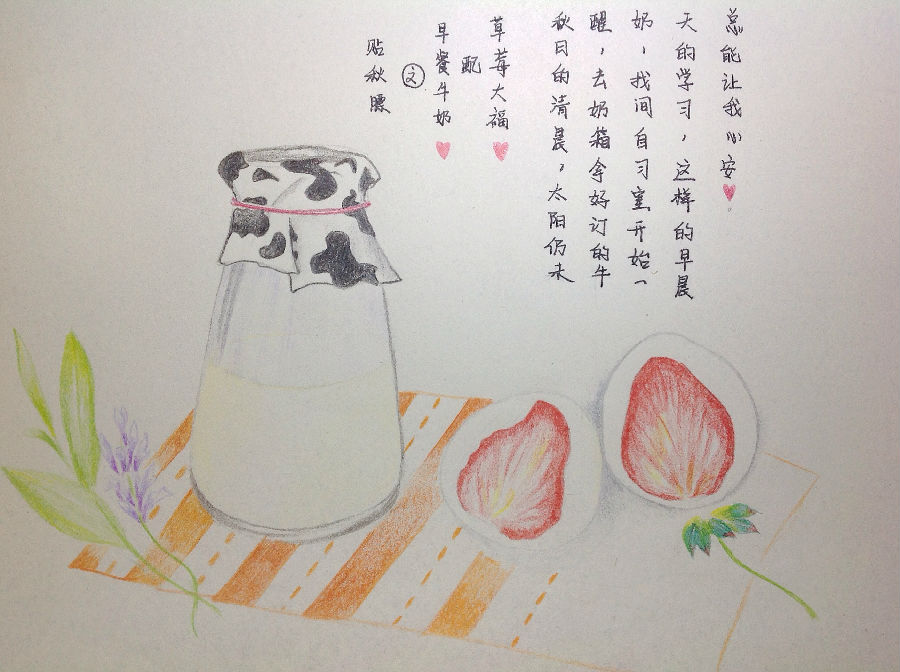 贴秋膘
之
早餐牛奶
配
草莓大福
秋日的清晨，太阳仍未
醒，去奶箱拿好订的牛
奶，找间自习室开始一
天的学习，这样的早晨
总能让我心安。